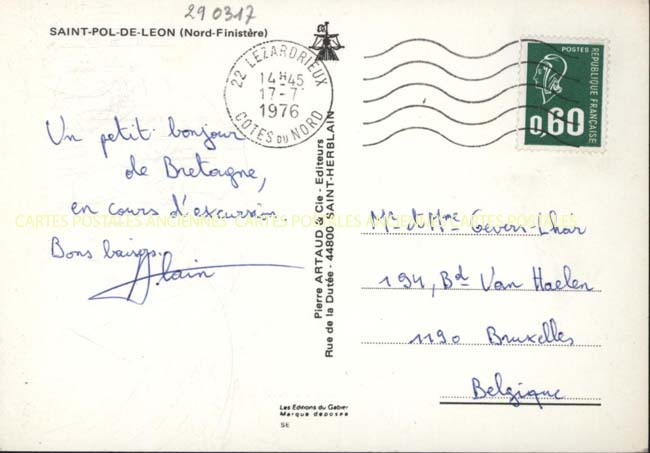 290317
SAINT-POL-DE-LEON (Nord-Finistère)
22 LEZARDRIEUX
14H45
17-7
1976
COTES DU NORD
POSTES
REPUBLIQUE FRANÇAISE
0,60
Un petit bonjour
de Bretagne,
en cours d'excursion.
Bons baisers.
Alain
Pierre ARTAUD & Cie - Editeurs
Rue de la Dutée - 44800 SAINT-HERBLAIN
Mr et Mme Gevers-Lhar
194, Bd Van Haelen
1190 Bruxelles
Belgique
CARTES POSTALES ANCIENNES CARTES POSTALES ANCIENNES CARTES POSTALES
Les Editions du Gabier
Marque déposée
SE